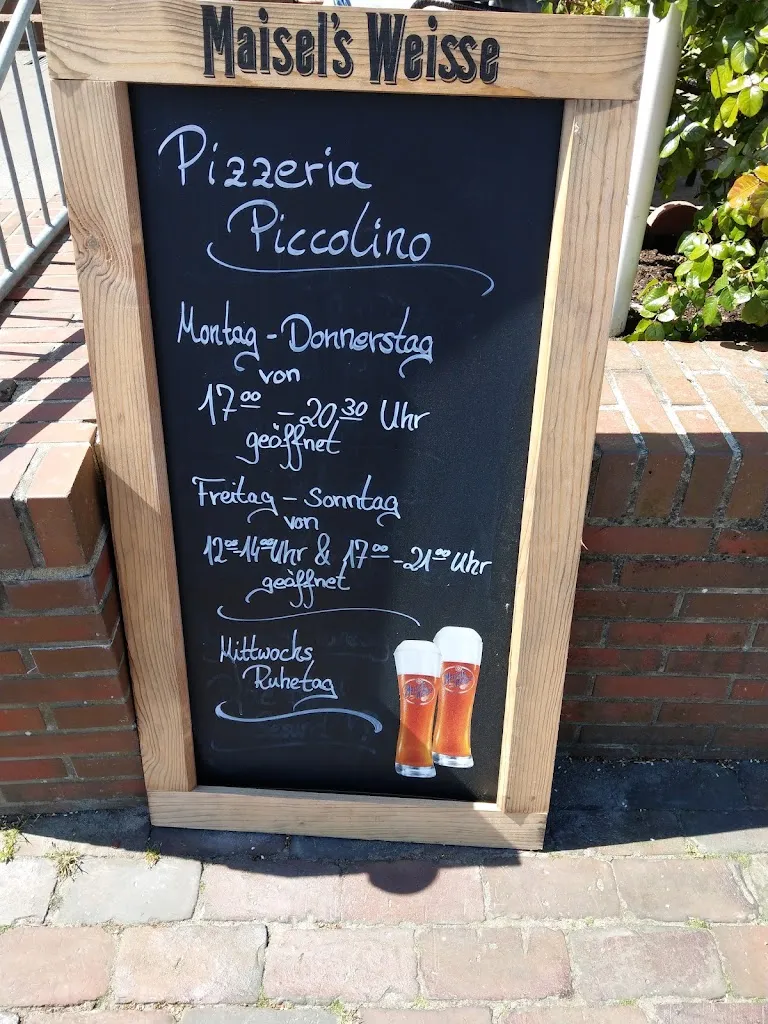 Maisel's Weisse
Pizzeria
Piccolino
Montag - Donnerstag
von
17⁰⁰ - 20,³⁰ Uhr
geöffnet
Freitag - Sonntag
von
12⁰⁰-14⁰⁰Uhr & 17⁰⁰-21⁰⁰ Uhr
geöffnet
Mittwochs
Ruhetag